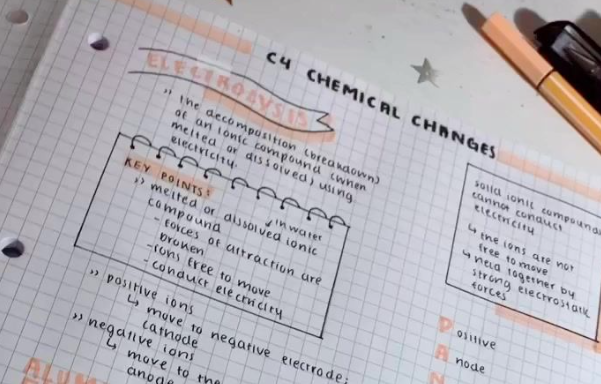 C4 CHEMICAL CHANGES
ELECTROLYSIS
" the decomposition (breakdown)
of an ionic compound (when
melted or dissolved) using
electricity.
KEY POINTS:
" melted or dissolved ionic
↙in water
compound
- forces of attraction are
broken
- ions free to move
- conduct electricity
" positive ions
↳ move to negative electrode:
cathode
" negative ions
↳ move to the
anode
solid ionic compounds
cannot conduct
electricity
↳ the ions are not
free to move
↳ held together by
strong electrostatic
forces
Positive
Anode
N